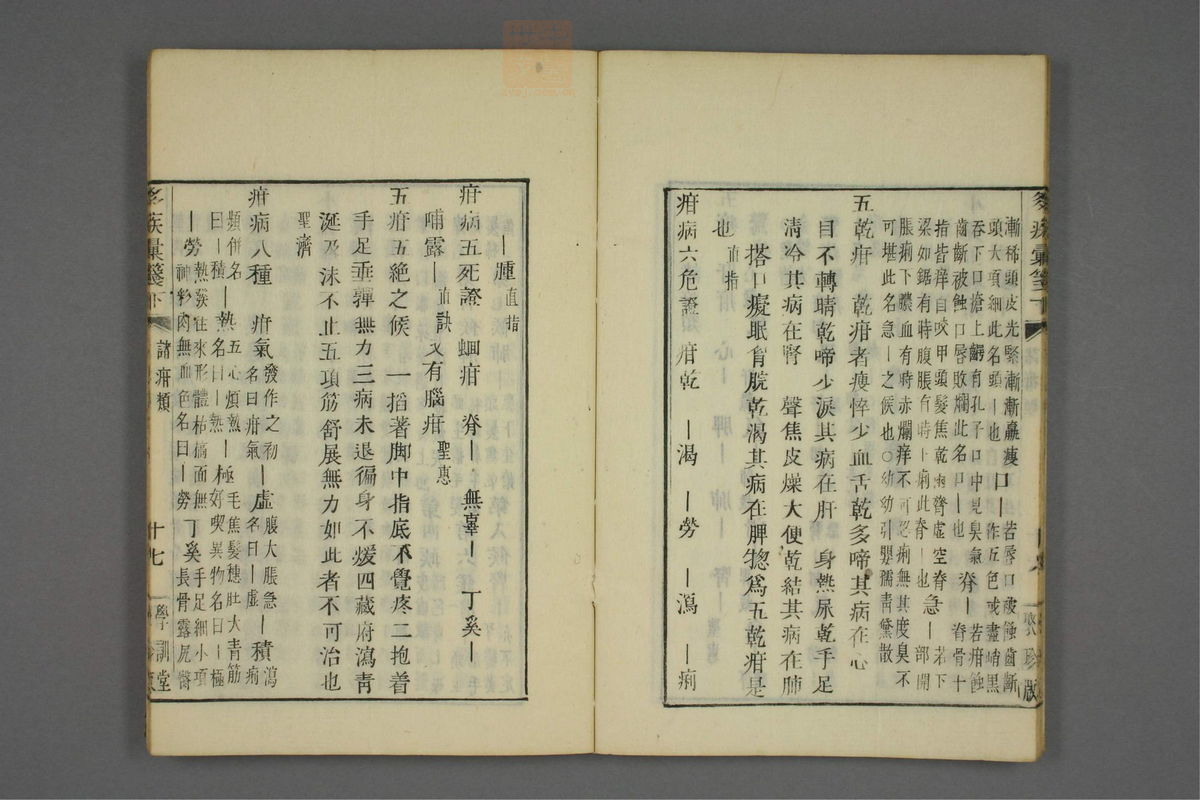 漸稀頭皮光緊漸漸羸瘦口｜若唇口被蝕齒斷
頭大項細此名頭｜也 作五色或盡峭黑
吞下口瘡上齶有孔子口中見臭氣脊｜若疳蝕
齒斷被蝕口唇敗爛此名口｜也 脊骨十
指皆痒自咬甲頭髮焦乾兩脅虛空脊｜若下
梁如鋸有時腹脹有時下痢此脊｜也急｜部開
脹痢下膿血有時赤爛痒不可忍痢無其度臭不
可堪此名急｜之候也○幼幼引嬰孺青黛散
五乾疳 乾疳者瘦悴少血舌乾多啼其病在心
目不轉睛乾啼少淚其病在肝 身熱尿乾手足
清冷其病在腎 聲焦皮燥大便乾結其病在肺
搭口癡眠胷脘乾渴其病在脾惣為五乾疳是
也 直指
疳病六危證 疳乾 ｜渴 ｜勞 ｜瀉 ｜痢
｜腫 直指
疳病五死證 蛔疳 脊｜ 無辜｜ 丁奚｜
哺露｜ 直訣 又有腦疳 聖惠
五疳五絶之候 一搯著脚中指底不覺疼二抱着
手足垂嚲無力三病未退徧身不煖四藏府瀉青
涎及沫不止五項筋舒展無力如此者不可治也
聖濟
疳病八種 疳氣發作之初名曰疳氣｜虛腹大脹急名曰｜虛｜積瀉病
頻併名曰｜積｜熱五心煩熱名曰｜熱｜極毛焦髮穗肚大青筋好喫異物名曰｜極
｜勞熱發往來形體枯槁面無神彩肉無血色名曰｜勞丁奚手足細小項長骨露尻臀
諸疳類
十七
學訓堂
聚珍版